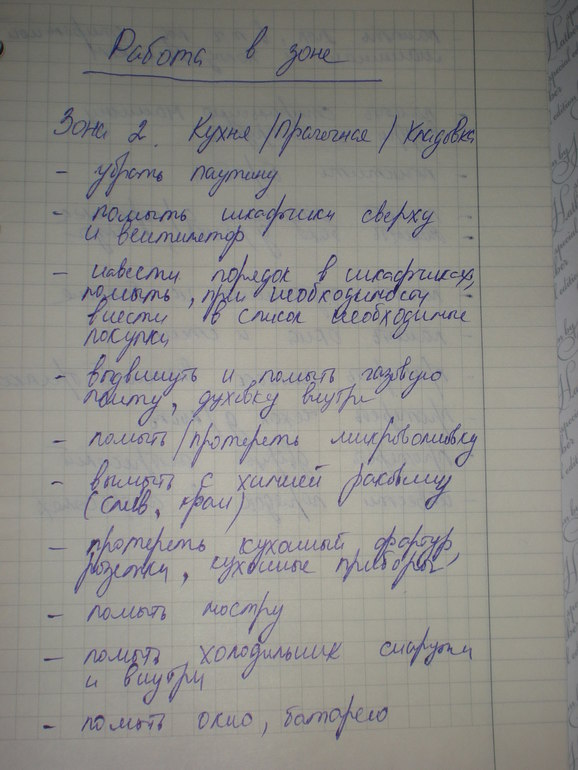 Работа в зоне
Зона 2. Кухня/Прачечная/Кладовка
- убрать паутину
- помыть шкафчики сверху
и вентилятор
- навести порядок в шкафчиках,
помыть, при необходимости
внести в список необходимые
покупки
- выдвинуть и помыть газовую
плиту, духовку внутри
- помыть/протереть микроволновку
- вымыть с химией раковину
(слив, кран)
- протереть кухонный фартук,
розетки, кухонные приборы
- помыть люстру
- помыть холодильник снаружи
и внутри
- помыть окно, батарею